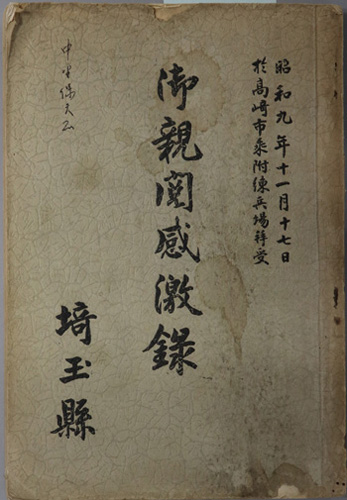 昭和九年十一月十七日
於高崎市乗附練兵場拝受
御親閲感激錄
埼玉縣